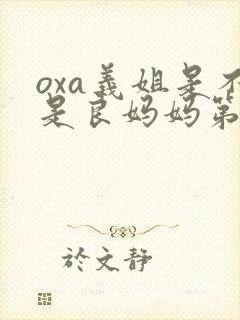 oxa義姐是不
是良妈妈第
於文静